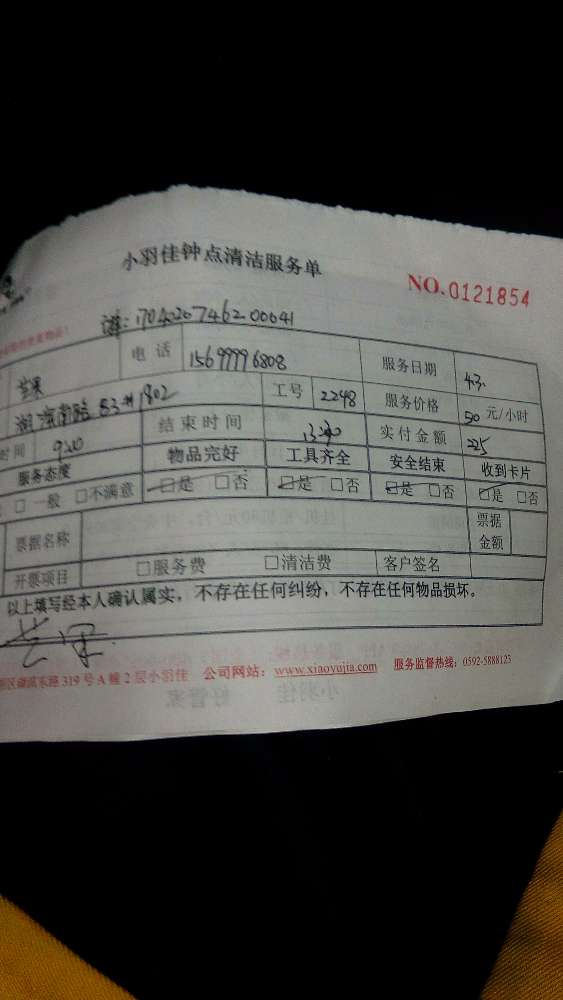 小羽佳钟点清洁服务单
NO.0121854
电话 15699996808 服务日期 4.3.
1802 工号 2248 服务价格 50 元/小时
时间 920 结束时间 实付金额 225
服务态度 物品完好 工具齐全 安全结束 收到卡片
□一般 □不满意 □是 □否 □是 □否 □是 □否 □是 □否
票据名称 票据金额
开票项目 □服务费 □清洁费 客户签名
以上填写经本人确认属实，不存在任何纠纷，不存在任何物品损坏。
319号A幢2层小羽佳 公司网站：www.xiaoyujia.com 服务监督热线：0592-5888123